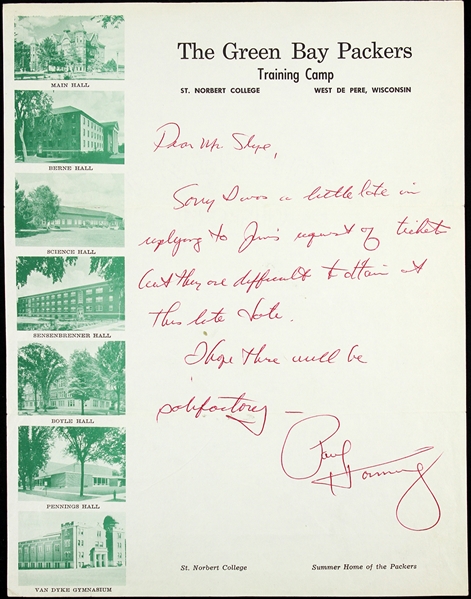 The Green Bay Packers
Training Camp
ST. NORBERT COLLEGE WEST DE PERE, WISCONSIN
MAIN HALL
BERNE HALL
SCIENCE HALL
SENSENBRENNER HALL
BOYLE HALL
PENNINGS HALL
VAN DYKE GYMNASIUM
Dear Mr.
Sorry I was a little late in
replying to Jim's request of tickets
but they are difficult to attain at
this late date.
I hope these will be
satisfactory —
Paul Hornung
St. Norbert College Summer Home of the Packers